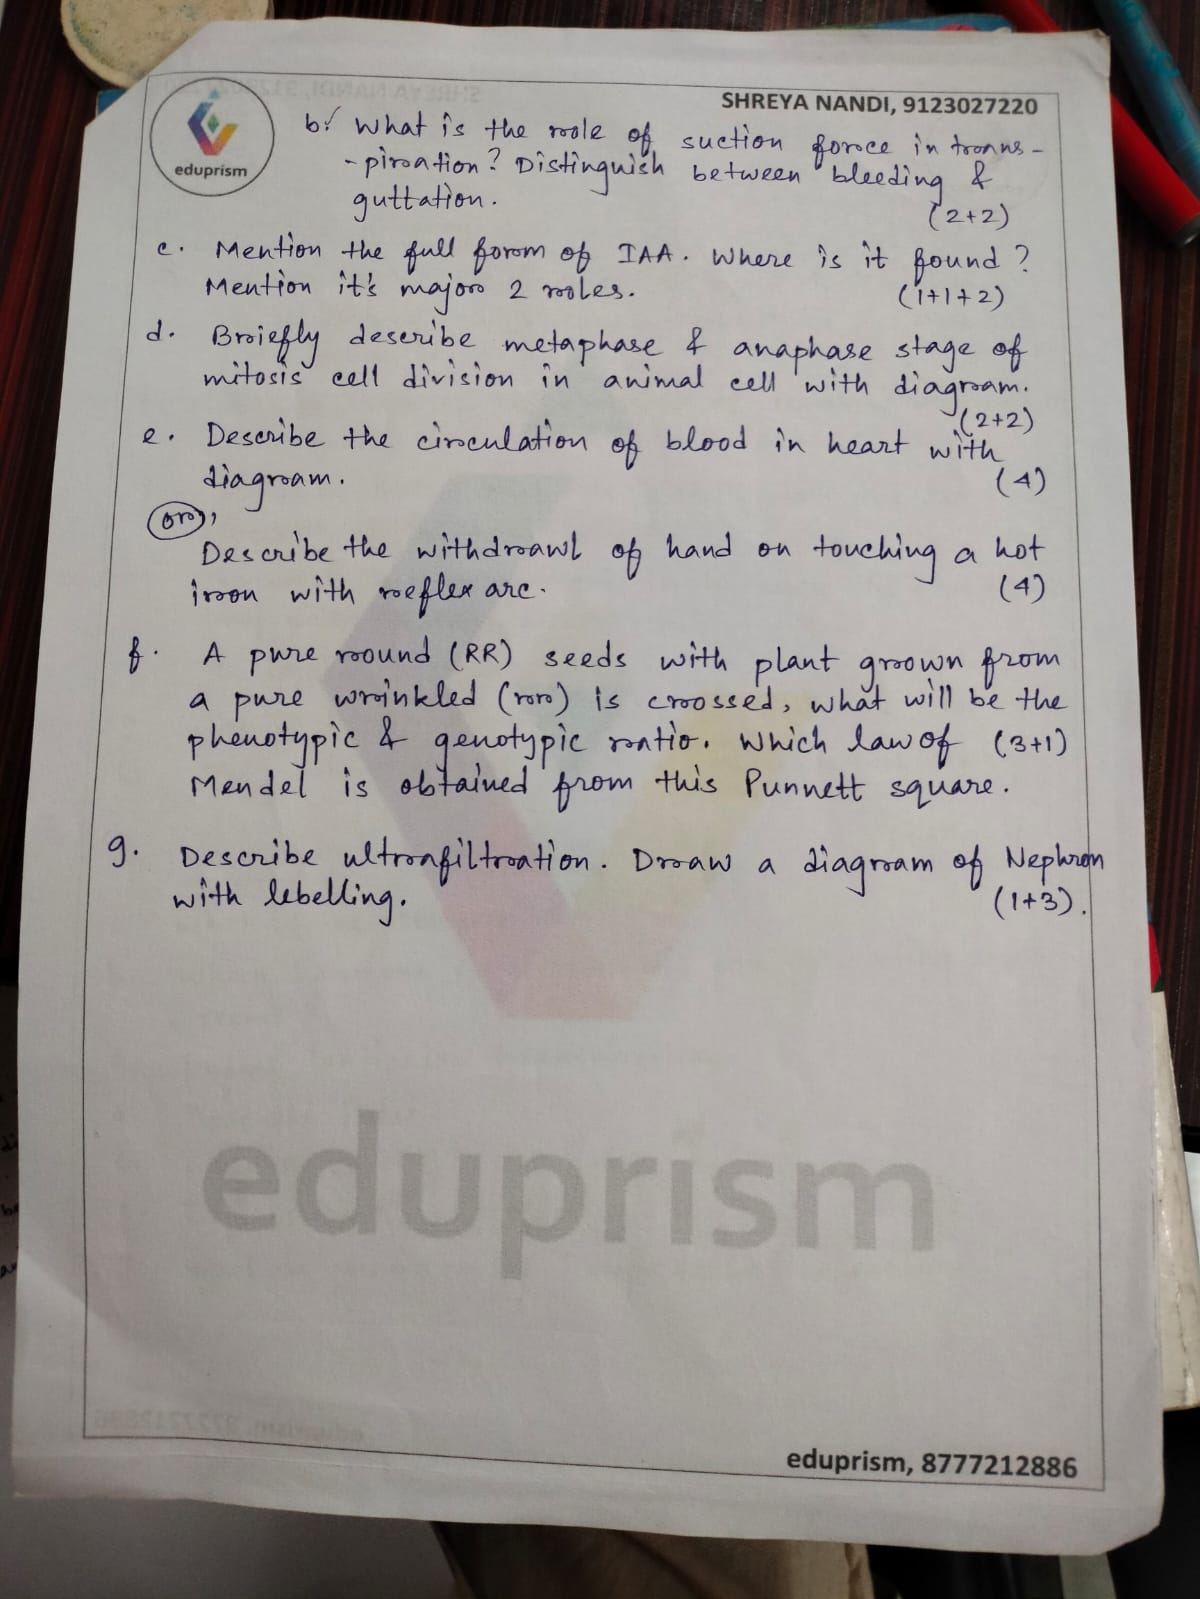 SHREYA NANDI, 9123027220
eduprism
b. What is the role of suction force in trans-
-piration? Distinguish between bleeding &
guttation. (2+2)
c. Mention the full form of IAA. Where is it found?
Mention it's major 2 roles. (1+1+2)
d. Briefly describe metaphase & anaphase stage of
mitosis cell division in animal cell with diagram.
(2+2)
e. Describe the circulation of blood in heart with
diagram. (4)
or,
Describe the withdrawl of hand on touching a hot
iron with reflex arc. (4)
f. A pure round (RR) seeds with plant grown from
a pure wrinkled (rr) is crossed, what will be the
phenotypic & genotypic ratio. Which law of (3+1)
Mendel is obtained from this Punnett square.
g. Describe ultrafiltration. Draw a diagram of Nephron
with lebelling. (1+3).
eduprism
eduprism, 8777212886